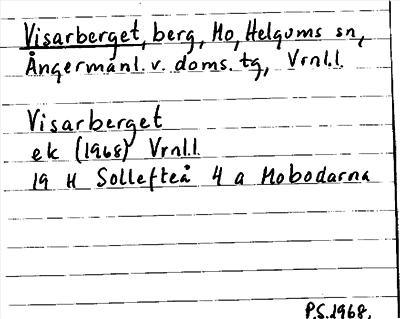 Visarberget, berg, Mo, Helgums sn,
Ångermanl. v. doms. tg, Vrnl.l.
Visarberget
ek (1968) Vrnl.l.
19 H Sollefteå 4 a Mobodarna
P.S. 1968.